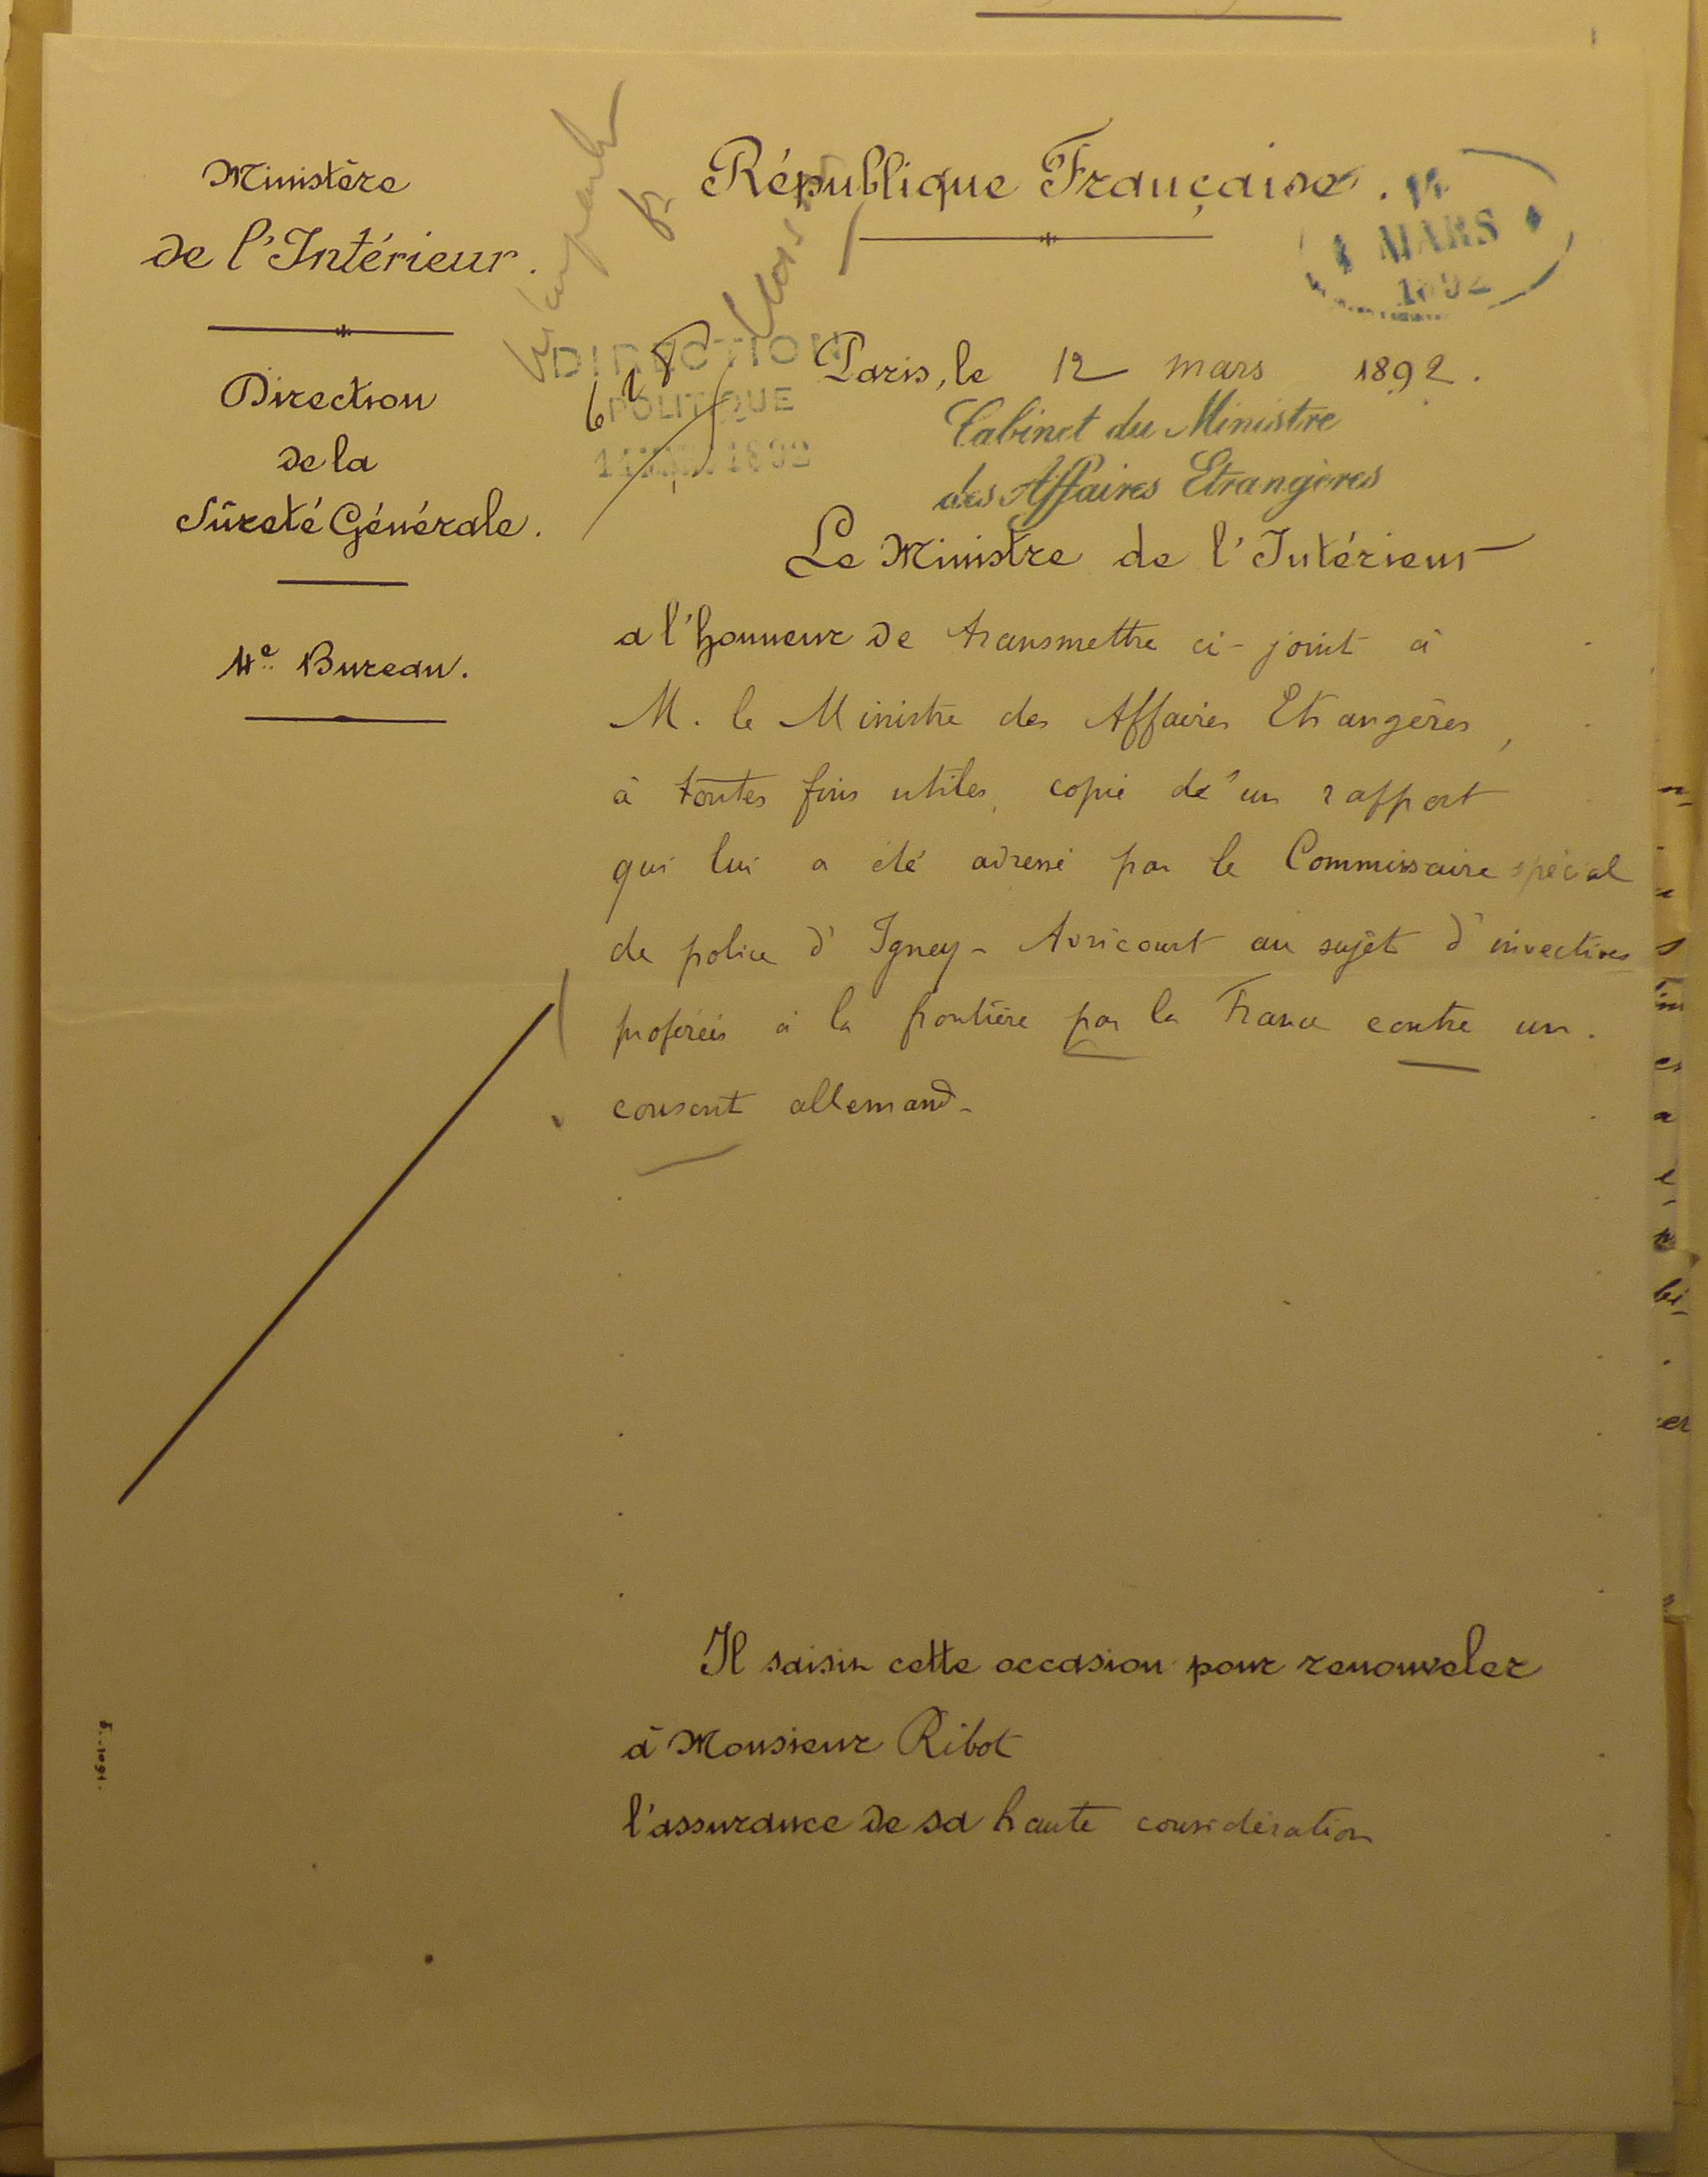 Ministère
de l'Intérieur.
Direction
de la
Sûreté Générale.
4e Bureau.
République Française.
14
MARS
1892
DIRECTION
POLITIQUE
14 MARS 1892
Paris, le 12 mars 1892.
Cabinet du Ministre
des Affaires Etrangères
Le Ministre de l'Intérieur
a l'honneur de transmettre ci-joint à
M. le Ministre des Affaires Etrangères,
à toutes fins utiles, copie d'un rapport
qui lui a été adressé par le Commissaire spécial
de police d'Igney-Avricourt au sujet d'invectives
proférées à la frontière par la France contre un
conscrit allemand.
Il saisit cette occasion pour renouveler
à Monsieur Ribot
l'assurance de sa haute considération